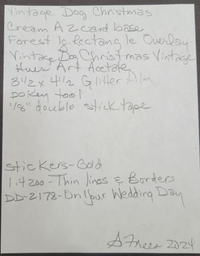 Vintage Dog Christmas
Cream A2 card base
Forest Rectangle Overlay
Vintage Dog Christmas Vintage
Art Acetate
3 1/2 x 4 1/2 Glitter Film
pokey tool
1/8" double stick tape
Stickers-Gold
1.4200-Thin lines & Borders
DD-2178-On Your Wedding Day
2024